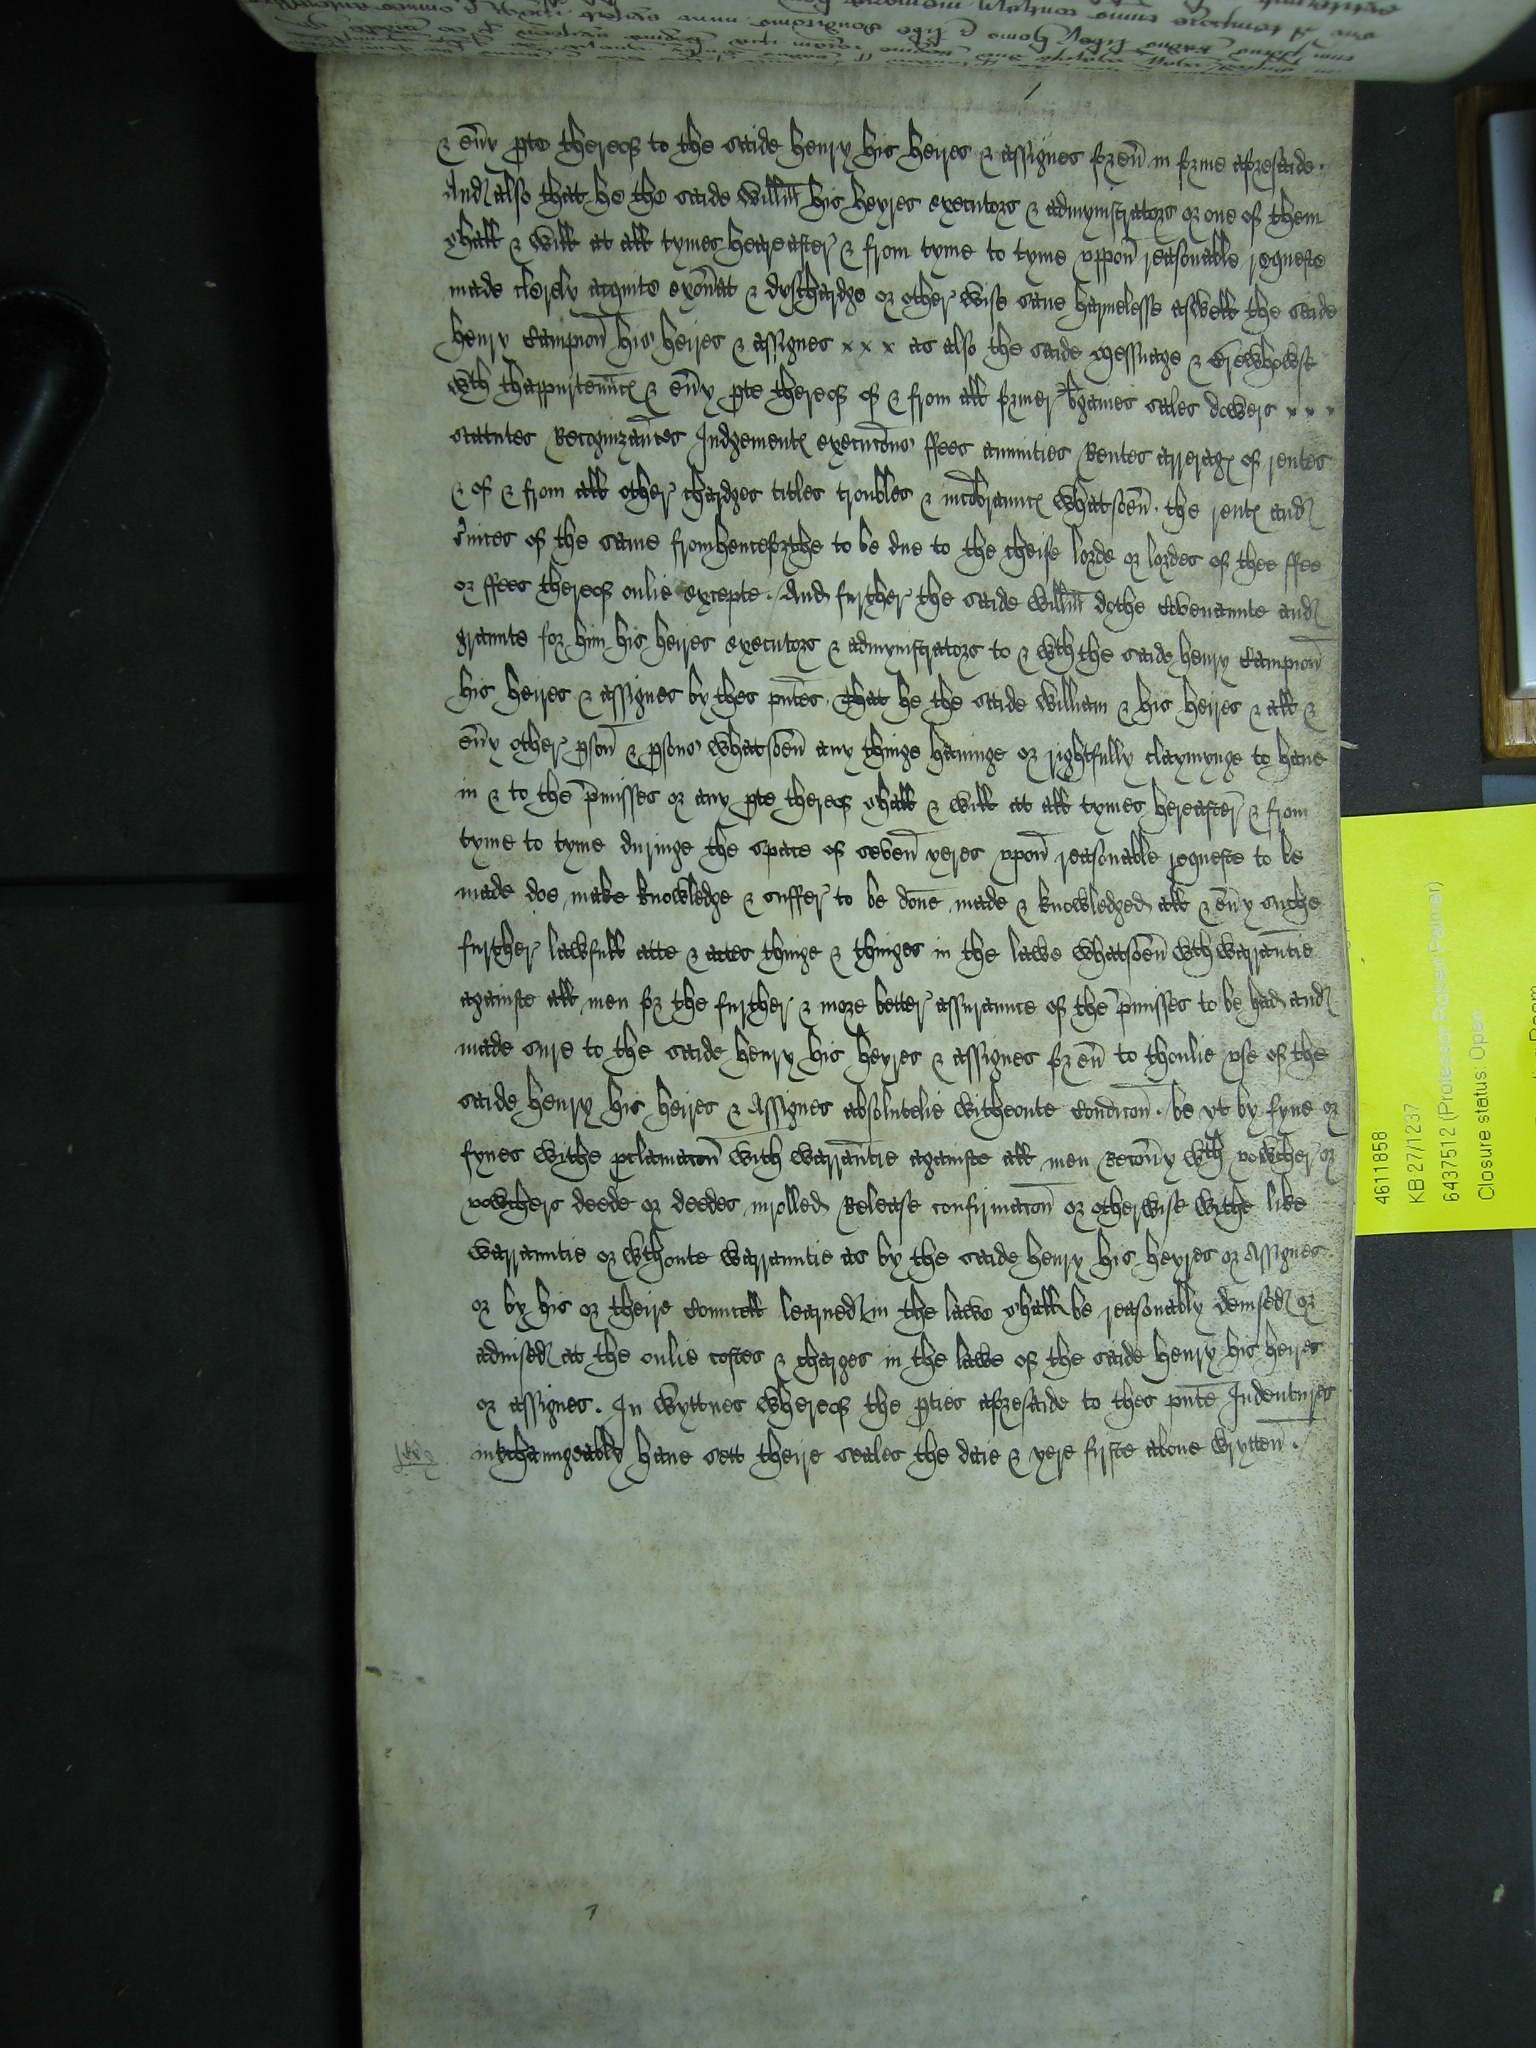 & eu'y p'te thereof to the saide Henry his heires & assignes for eu' in forme aforesaide.
And also that he the saide Will'm his heyres executors & admynistrators or one of them
shall & will at all tymes heareafter & from tyme to tyme vppon reasonable requeste
made clerely acquite exon'at & dyschardge or other wise saue harmelesse aswell the saide
Henry Campion his heires & assignes x x x as also the saide messuage & Brewhowse
wth thappurten'nc' & eu'y p'te thereof of & from all former bargaines sales dowers x x x
statutes Recognizances Judgement' execuc'ons ffees annuities Rentes arrerag' of rentes
& of & from all other chardges titles troubles & incobraunc' whatsoeu'. the rent' and
s'uices of the same fromhenceforthe to be due to the cheife lorde or lordes of thee ffee
or ffees thereof onlie excepte. And further the saide Will'm dothe Covenaunte and
graunte for him his heires executors & admynistrators to & wth the saide Henry Campion
his heires & assignes by thes p'ntes. that he the saide William & his heires & all &
eu'y other p'son & p'sons whatsoeu' any thinge hauinge or rightfully claymynge to haue
in & to the p'misses or any p'te thereof shall & will at all tymes hereafter & from
tyme to tyme duringe the space of seven yeres vpon reasonable requeste to be
made doe make knowledge & suffer to be done made & knowledged all & eu'y suche
further lawfull acte & actes thinge & thinges in the lawe whatsoeu' wth warrantie
againste all men for the further & more better assuraunce of the p'misses to be had and
made sure to the saide Henry his heyres & assignes for eu' to thonlie vse of the
saide Henry his heires & Assignes absolutelie witheoute Condic'on. be yt by fyne or
fynes withe p'clamac'on with warrantie againste all men Recou'y wth vowcher or
vowchers deede or deedes inrolled Release confirmac'on or otherwise withe like
warrauntie or wthoute warrauntie as by the saide Henry his heyres or Assignes
or by his or theire Councell learned in the lawe shall be reasonably deuised or
aduised at the onlie costes & charges in the lawe of the saide Henry his heires
or assignes. In wyttnes whereof the p'ties aforesaide to thes p'nte Indentures
interchaungeably haue sett theire seales the daie & yere firste aboue wrytten.
4611858
KB 27/1237
6437512 (Professor Robert Palmer)
Closure status: Open